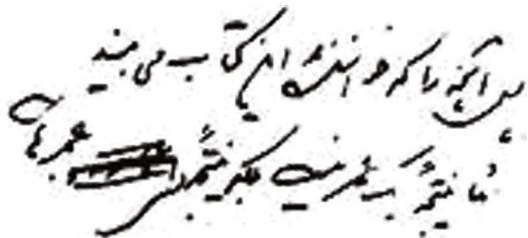 پس آنچه را که خوانندهٔ این کتاب می بیند
نتیجهٔ یک عمر نیست بلکه نتیجهٔ عمرهاست